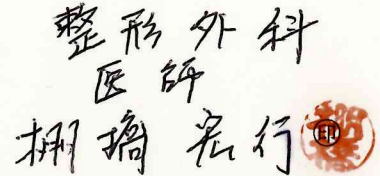 整形外科
医師
棚橋宏行 ㊞